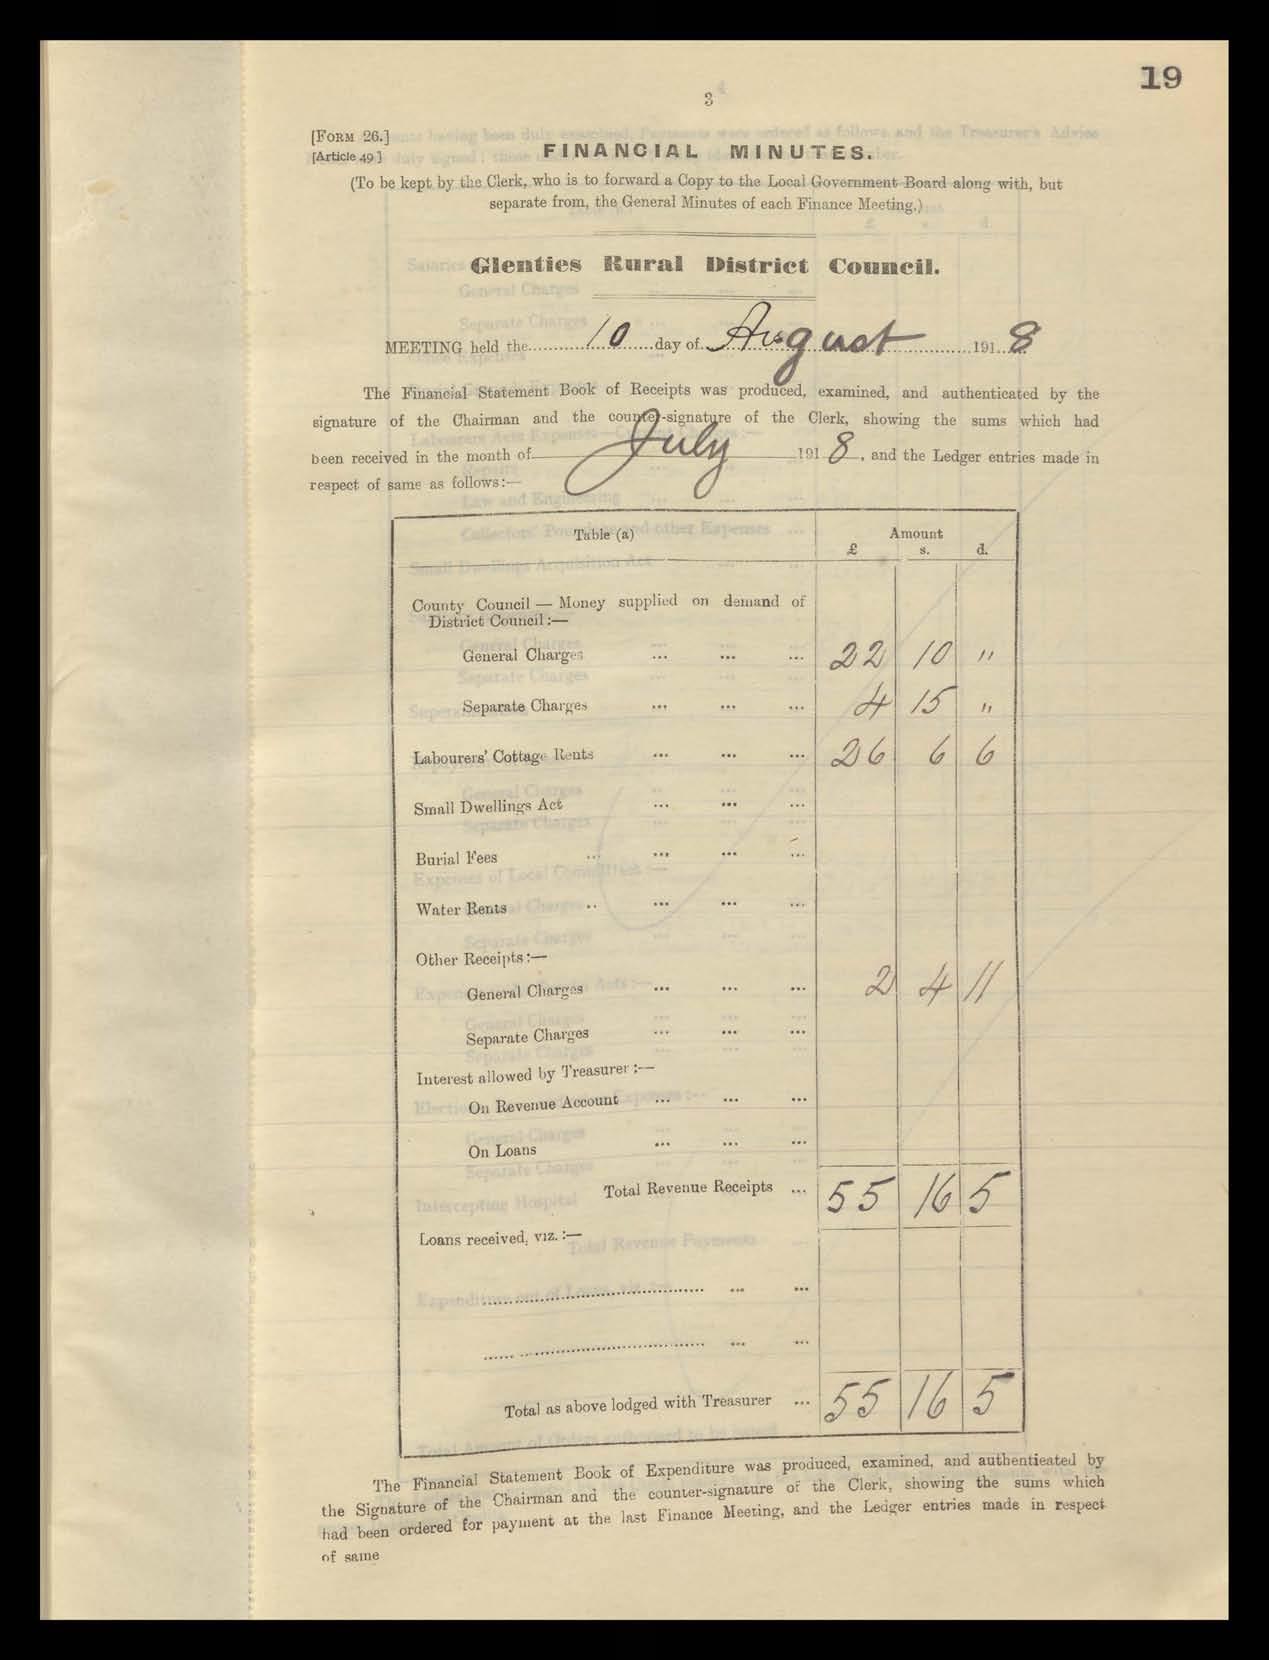 19
3
[FORM 26.]
[Article 49]
FINANCIAL MINUTES.
(To be kept by the Clerk, who is to forward a Copy to the Local Government Board along with, but
separate from, the General Minutes of each Finance Meeting.)
Glenties Rural District Council.
MEETING held the 10 day of August 1918
The Financial Statement Book of Receipts was produced, examined, and authenticated by the
signature of the Chairman and the counter-signature of the Clerk, showing the sums which had
been received in the month of July 1918, and the Ledger entries made in
respect of same as follows:—
Table (a) Amount
£ s. d.
County Council — Money supplied on demand of
District Council:—
General Charges ... ... ... 22 10 "
Separate Charges ... ... ... 4 15 "
Labourers' Cottage Rents ... ... ... 26 6 6
Small Dwellings Act ... ... ...
Burial Fees ... ... ... ...
Water Rents .. ... ... ...
Other Receipts:—
General Charges ... ... ... 2 4 11
Separate Charges ... ... ...
Interest allowed by Treasurer:—
On Revenue Account ... ... ...
On Loans ... ... ...
Total Revenue Receipts ... 55 16 5
Loans received, viz.:—
... ...
... ...
Total as above lodged with Treasurer ... 55 16 5
The Financial Statement Book of Expenditure was produced, examined, and authenticated by
the Signature of the Chairman and the counter-signature of the Clerk, showing the sums which
had been ordered for payment at the last Finance Meeting, and the Ledger entries made in respect
of same